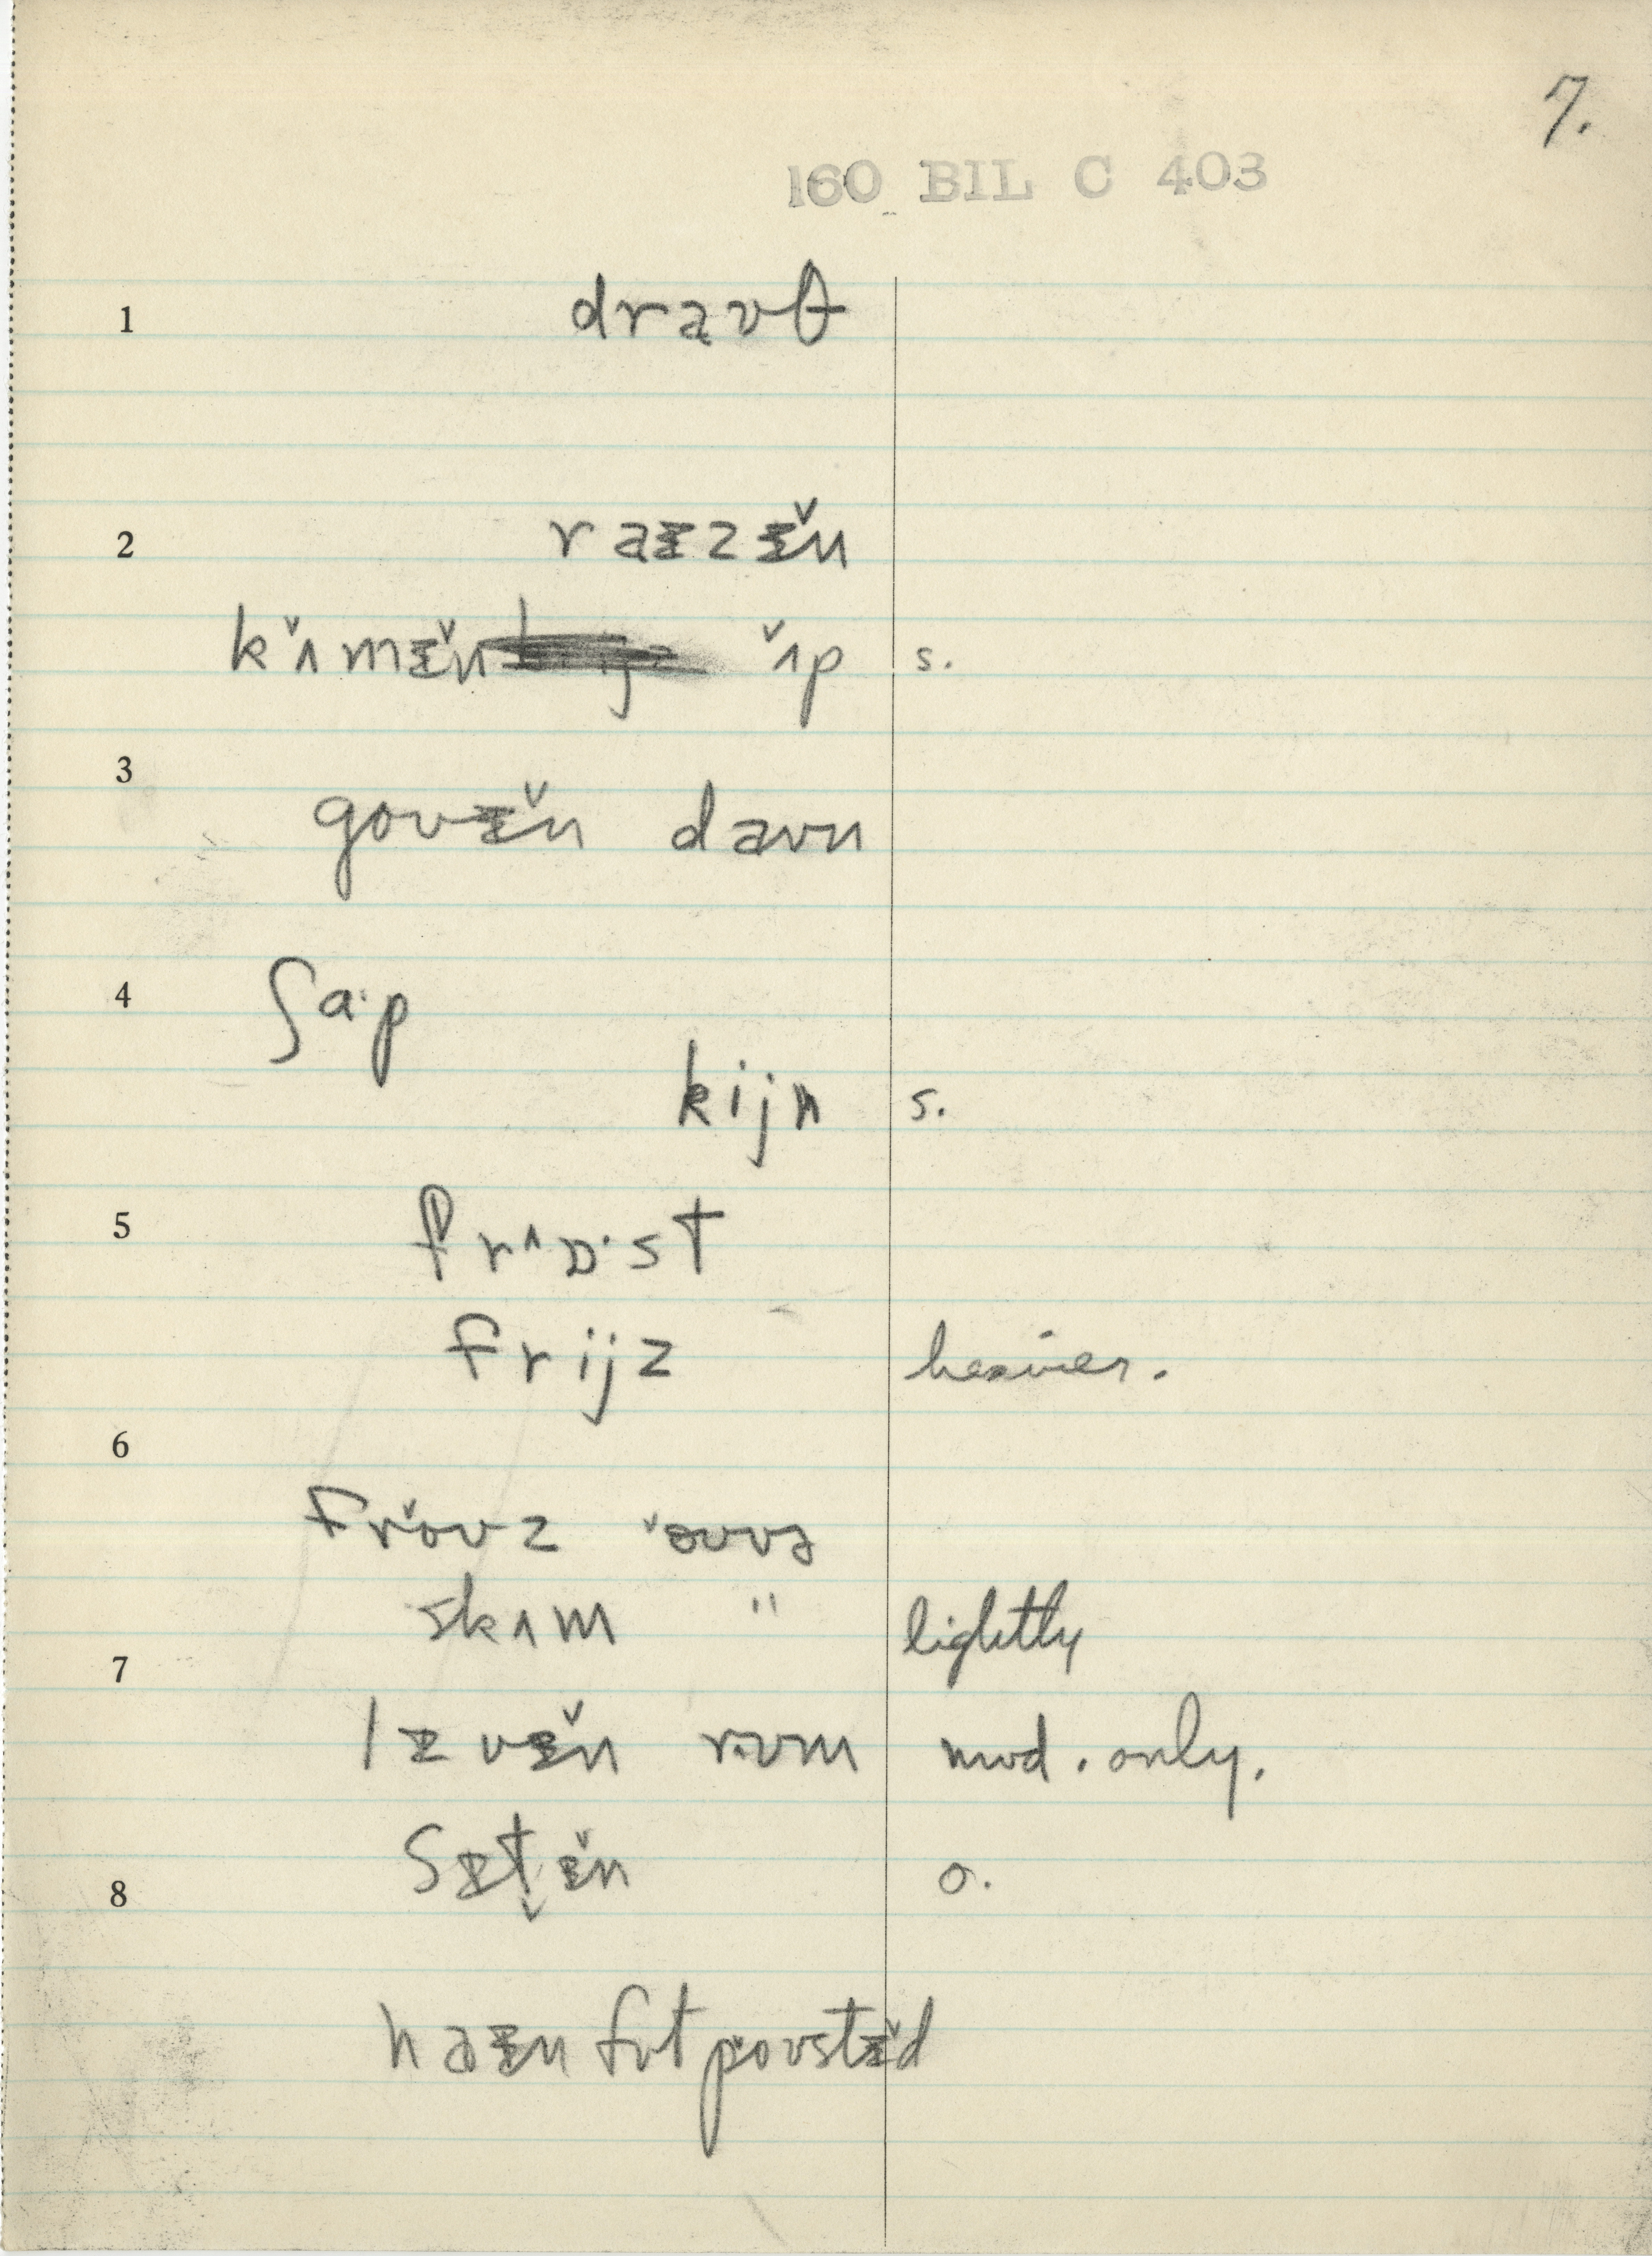 7.
160 BIL C 403
1 draʊθ
2 raɪzɪ̆n
kʌ̆mɪ̆n ʌ̆p s.
3 govɪ̆n daʊn
4 ʃa·p
kijn s.
5 frʌɒ·st
frijz heavier.
6
frŏʊz ŏʊvɚ
skɪm " lightly
7
lɪvɪ̆n rʊm mod. only.
sɪt̬ɪ̆n o.
8
haɪn fʊt pŏʊstɪ̆d